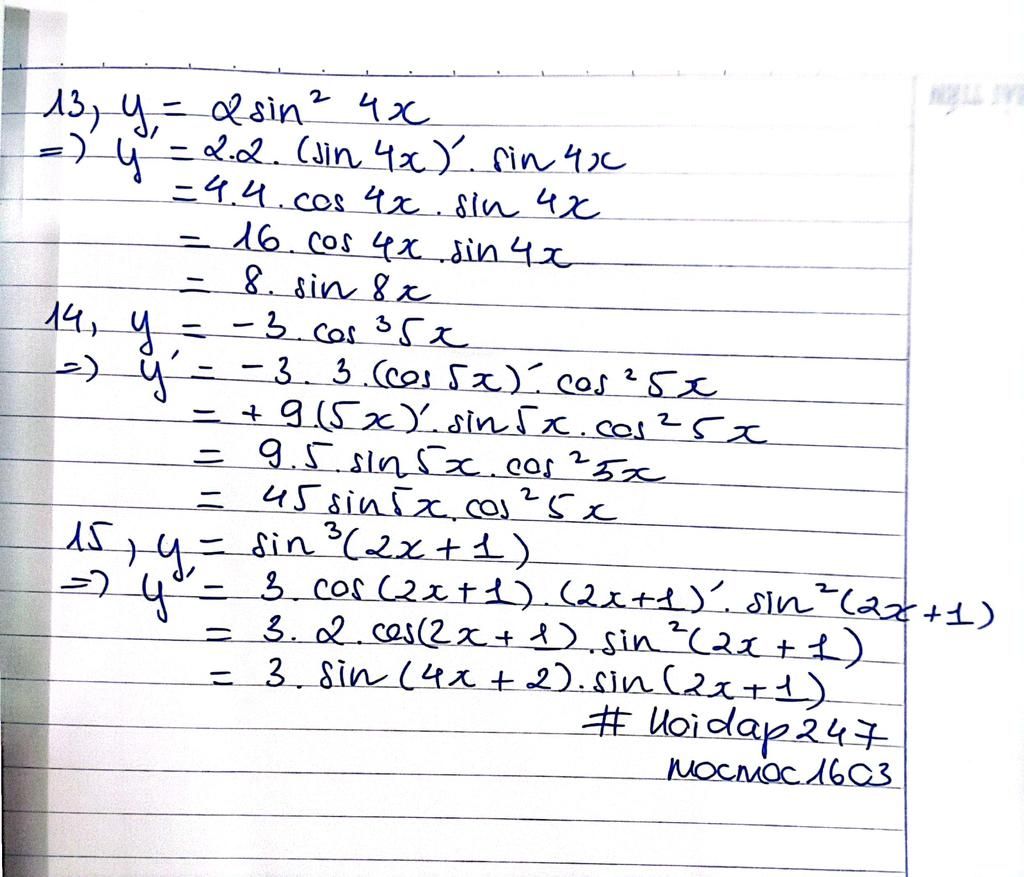 13, y = 2sin² 4x
=) y' = 2.2. (sin 4x)'. sin 4x
= 4.4. cos 4x. sin 4x
= 16. cos 4x. sin 4x
= 8. sin 8x
14, y = -3. cos ³5x
=) y' = -3. 3.(cos 5x)'. cos ²5x
= + 9(5x)'. sin5x. cos² 5x
= 9.5. sin5x. cos ²5x
= 45 sin5x. cos² 5x
15, y = sin ³(2x+1)
=) y' = 3. cos(2x+1). (2x+1)'. sin²(2x+1)
= 3. 2. cos(2x+1). sin²(2x+1)
= 3. sin(4x+2). sin(2x+1)
# Hoidap247
mocmoc1603